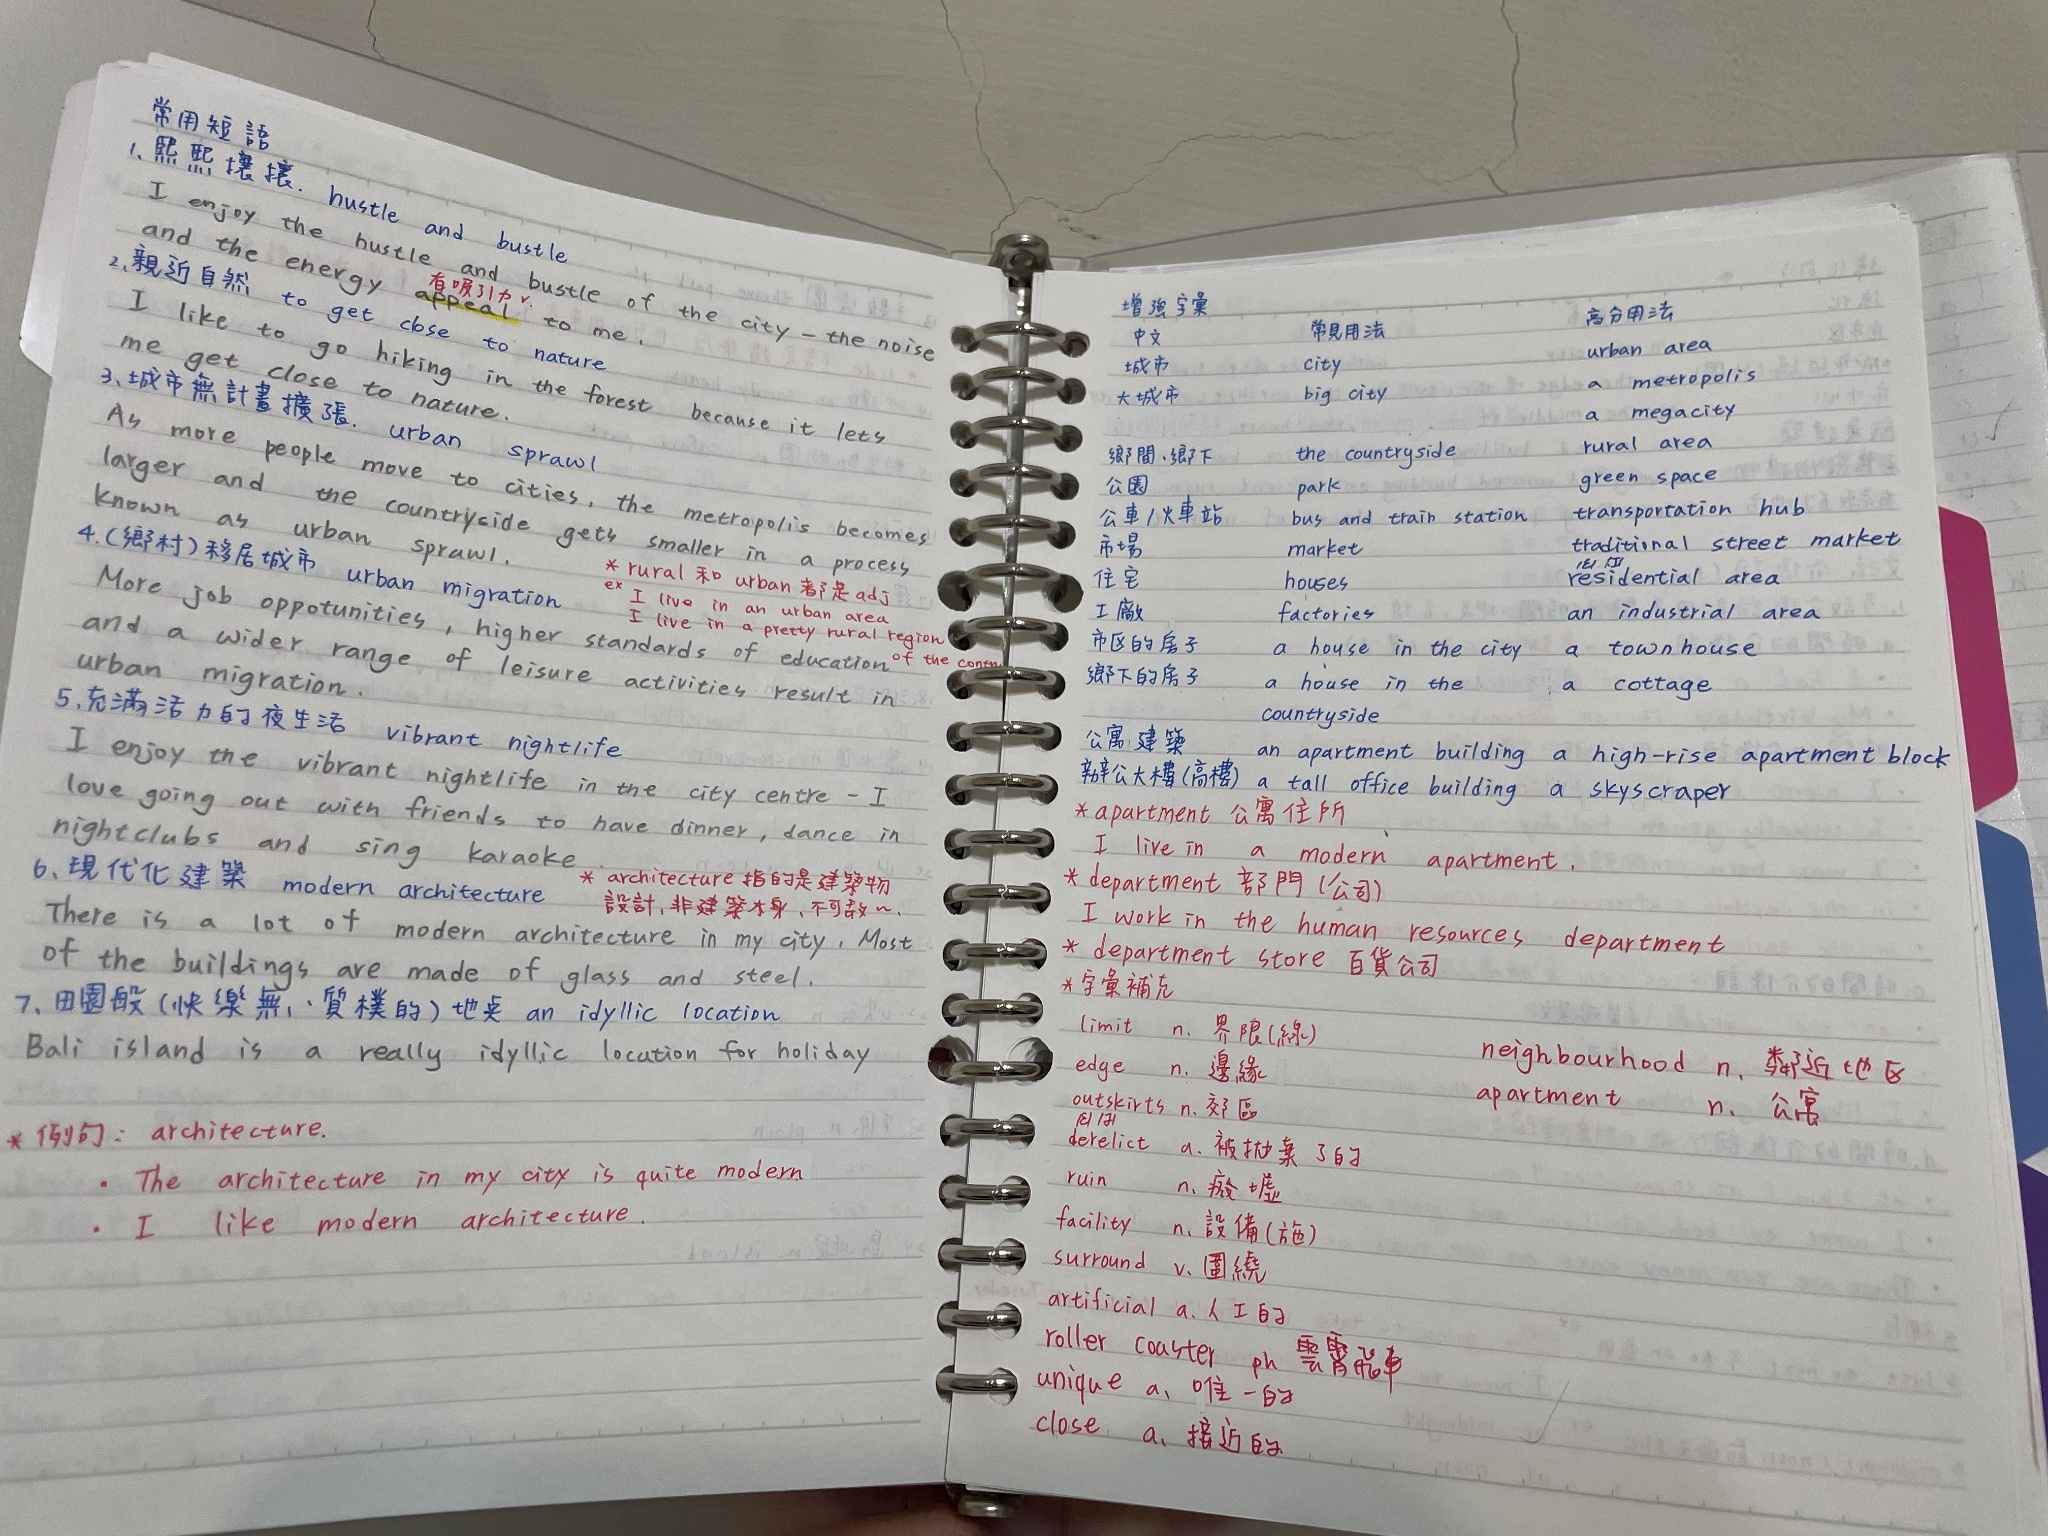 常用短語
1、熙熙攘攘. hustle and bustle
I enjoy the hustle and bustle of the city - the noise
and the energy appeal to me.
有吸引力 v.
2、親近自然 to get close to nature
I like to go hiking in the forest because it lets
me get close to nature.
3、城市無計畫擴張. urban sprawl
As more people move to cities, the metropolis becomes
larger and the countryside gets smaller in a process
known as urban sprawl.
* rural 和 urban 都是 adj
ex I live in an urban area
I live in a pretty rural region
of the contry
4.(鄉村)移居城市 urban migration
More job oppotunities, higher standards of education
and a wider range of leisure activities result in
urban migration.
5、充滿活力的夜生活 vibrant nightlife
I enjoy the vibrant nightlife in the city centre - I
love going out with friends to have dinner, dance in
nightclubs and sing karaoke.
6、現代化建築 modern architecture
* architecture 指的是建築物
設計,非建築本身,不可數 n.
There is a lot of modern architecture in my city. Most
of the buildings are made of glass and steel.
7、田園般(快樂無、質樸的)地點 an idyllic location
Bali island is a really idyllic location for holiday
* 例句: architecture.
• The architecture in my city is quite modern
• I like modern architecture.
增強字彙
中文 常見用法 高分用法
城市 city urban area
大城市 big city a metropolis
a megacity
鄉間、鄉下 the countryside rural area
公園 park green space
公車/火車站 bus and train station transportation hub
市場 market traditional street market
住宅 houses residential area
工廠 factories an industrial area
市区的房子 a house in the city a townhouse
鄉下的房子 a house in the a cottage
countryside
公寓建築 an apartment building a high-rise apartment block
辦公大樓(高樓) a tall office building a skyscraper
* apartment 公寓住所
I live in a modern apartment.
* department 部門(公司)
I work in the human resources department
* department store 百貨公司
* 字彙補充
limit n. 界限(線)
edge n. 邊緣
outskirts n. 郊區
derelict a. 被拋棄了的
ruin n. 廢墟
facility n. 設備(施)
surround v. 圍繞
artificial a. 人工的
roller coaster ph 雲霄飛車
unique a、唯一的
close a、接近的
neighbourhood n、鄰近地区
apartment n、公寓